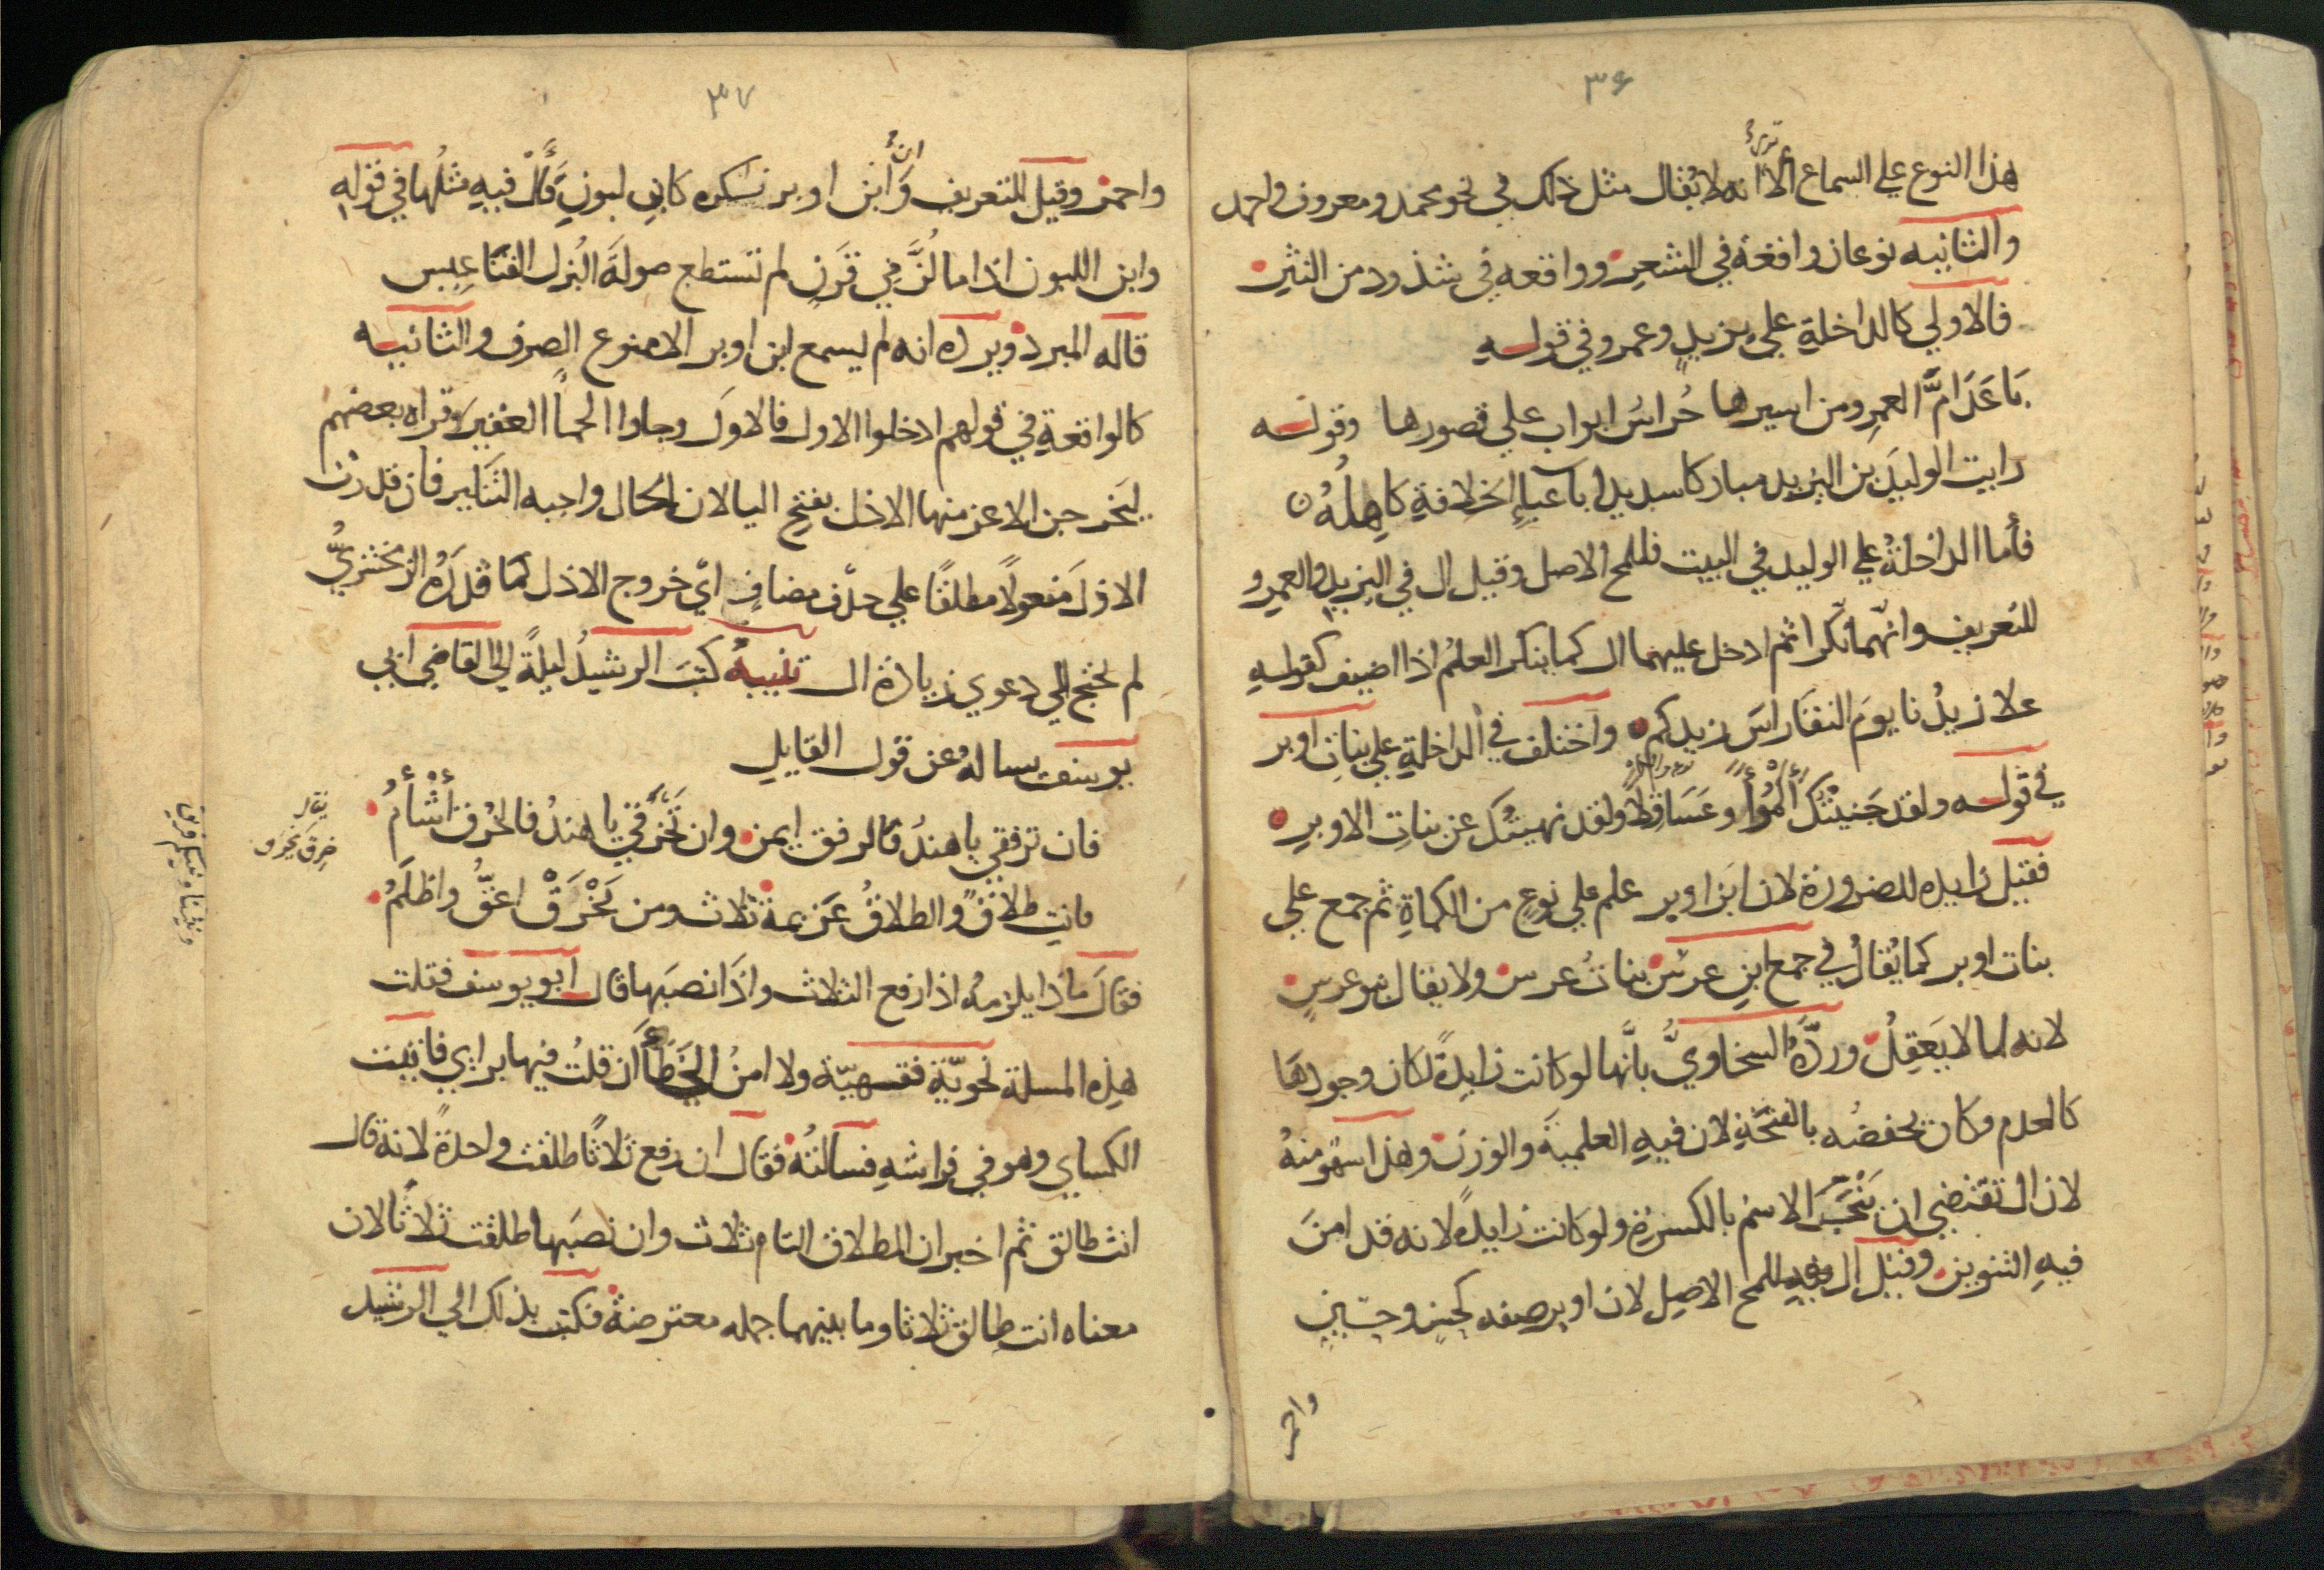 ٣۶
هذا النوع علي السماع ألا ترى أنه لا يُقال مثل ذلك في نحو محمد ومعروف واحمد
والثانيه نوعان واقعة في الشعر وواقعه في شذوذ من النثر
فالاولي كالداخلةِ علي يزيدٍ وعمرو في قوله
باعَدَ امَّ العمرِو من اسيرها حُراسُ ابواب علي قصورها وقوله
رايت الوليدَ بن اليزيد مباركا شديدا باعباءِ الخلافةِ كاهِلُهُ
فأما الداخلةُ علي الوليد في البيت فللمح الاصل وقيل ال في اليزيد والعمرو
للتعريف وانّهما نُكّرا ثم ادخل عليهما ال كما ينكر العلمُ اذا اضيف كقوله
علا زيدُنا يومَ النقا راسَ زيدكم واختلف في الداخلةِ علي بناتِ اوبر
في قوله ولقد جَنيتُك أكمُؤاً وعَسَاقِلاً ولقد نهيتُك عن بناتِ الاوبرِ
فقيل زايده للضرورة لان ابن اوبر علم علي نوعٍ من الكماةِ ثم جمع علي
بنات اوبر كما يُقالُ في جمع ابنِ عرسٍ بناتُ عرس ولا يقال بنو عرسٍ
لانه لما لا يَعقِلُ وردَّهُ السخاويُّ بأنَّها لو كانت زايدةً لكان وجودها
كالعدم وكان يخفضُه بالفتحَةِ لان فيهِ العلميةَ والوزنَ وهذا سَهو منهُ
لان ال تقتضي ان يَنْجَرَّ الاسمُ بالكسرةِ ولو كانت زايدةً لانه قد امنَ
فيهِ التنوين وقيل ال فيه للمح الاصل لان اوبر صفه كحسنٍ وحسينٍ
واحمر
٣٧
واحمر وقيل للتعريف وأن ابن اوبر نكره كابنِ لبونٍ فألْ فيهِ مثلُها في قولهِ
وابن اللبون اذا ما لُزَّ في قَرَنٍ لم تستطع صولَةَ البُزلِ القنَاعِيس
قاله المبرد ويرده انه لم يسمع ابن اوبر الا ممنوع الصرف والثانيه
كالواقعةِ في قولهم ادخلوا الاول فالاوَل وجاوا الجماً الغفير وقراه بعضهم
ليَخرجن الاعز منها الاذل بفتح اليا لان الحال واجبه التنكير فان قدرت
الاذلَ مفعولاً مطلقًا علي حذف مضافٍ ايّ خروج الاذل كما قدرهُ الزمخشريُّ
لم تحتج الي دعوي زيادة ال تنبيهُ كتبَ الرشيدُ ليلةً الي القاضي ابي
يوسف يسالهُ عن قول القايلِ
فان ترفقي يا هندُ فالرفق ايمن وان تَخرَقي يا هندُ فالخُرق أشْأمُ
فانتِ طلاقٌ والطلاقُ عَزيمة ثلاث ومن يَخْرَقْ اعقُّ واظلَمُ
فقالَ ماذا يلزمهُ اذا رفع الثلاث واذَا نصبَها قال ابو يوسف فقلت
هذِه المسلة نحويّة فقهيّة ولا امنُ الخَطَأَ ان قلتُ فيها برايي فاتيت
الكساي وهو في فراشهِ فسالتُه فقال ان رفع ثلاثًا طلقت واحدةً لانهُ قال
انت طالق ثم اخبر ان الطلاق التام ثلاث وان نصبَها طلقت ثلاثًا لان
معناه انت طالق ثلاثا وما بينهما جمله معترضةٌ فكتب بذلك الي الرشيد
يقال
خرِق يخرَق